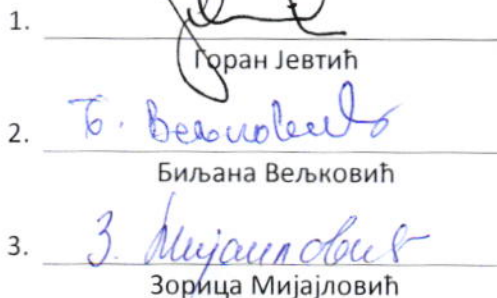 1.
Горан Јевтић
2. Б. Вељковић
Биљана Вељковић
3. З. Мијаиловић
Зорица Мијајловић